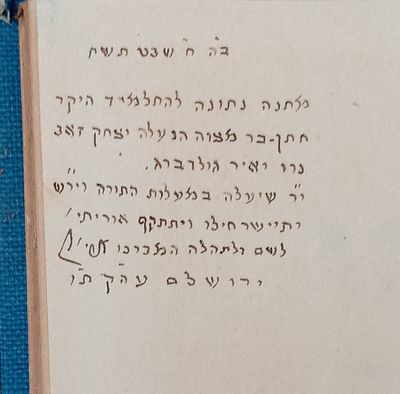 ב"ה ח' שבט תשח
מתנה נתונה להתלמיד היקר
חתן-בר מצוה הנעלה יצחק זאב
נרו יאיר גולדברג.
י"ר שיעלה במעלות התורה ויר"ש
יתיישר חילו ויתתקף אוריתי'
לשם ולתהלה המברכו
ירושלם עה"ק ת"ו